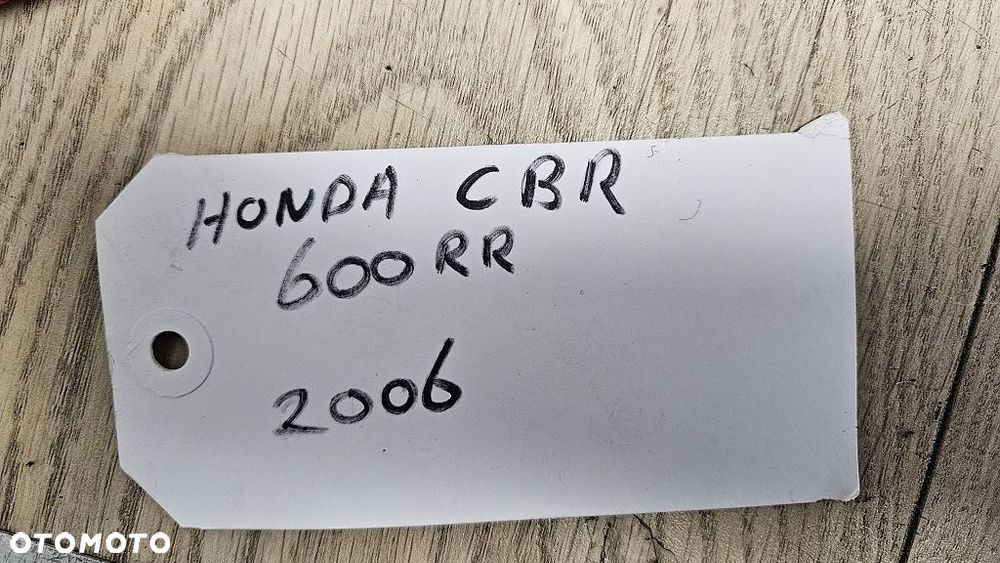 HONDA CBR
600RR
2006
OTOMOTO